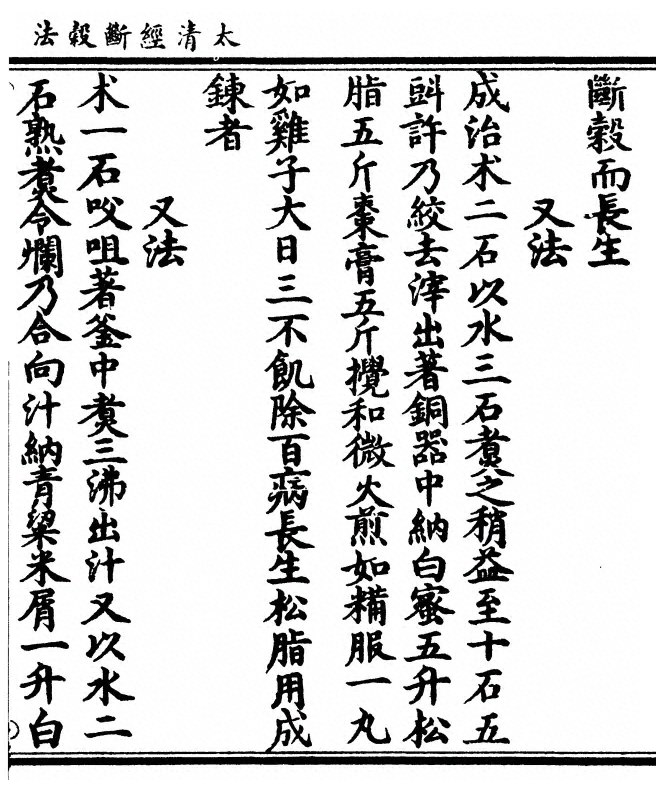 太清經斷穀法
斷穀而長生
又法
成治术二石以水三石煑之稍益至十石五
㪷許乃絞去滓出著銅器中納白蜜五升松
脂五斤棗膏五斤攪和微火煎如糒服一丸
如雞子大日三不飢除百病長生松脂用成
鍊者
又法
术一石㕮咀著釜中煑三沸出汁又以水二
石熟煑令爛乃合向汁納青粱米屑一升白